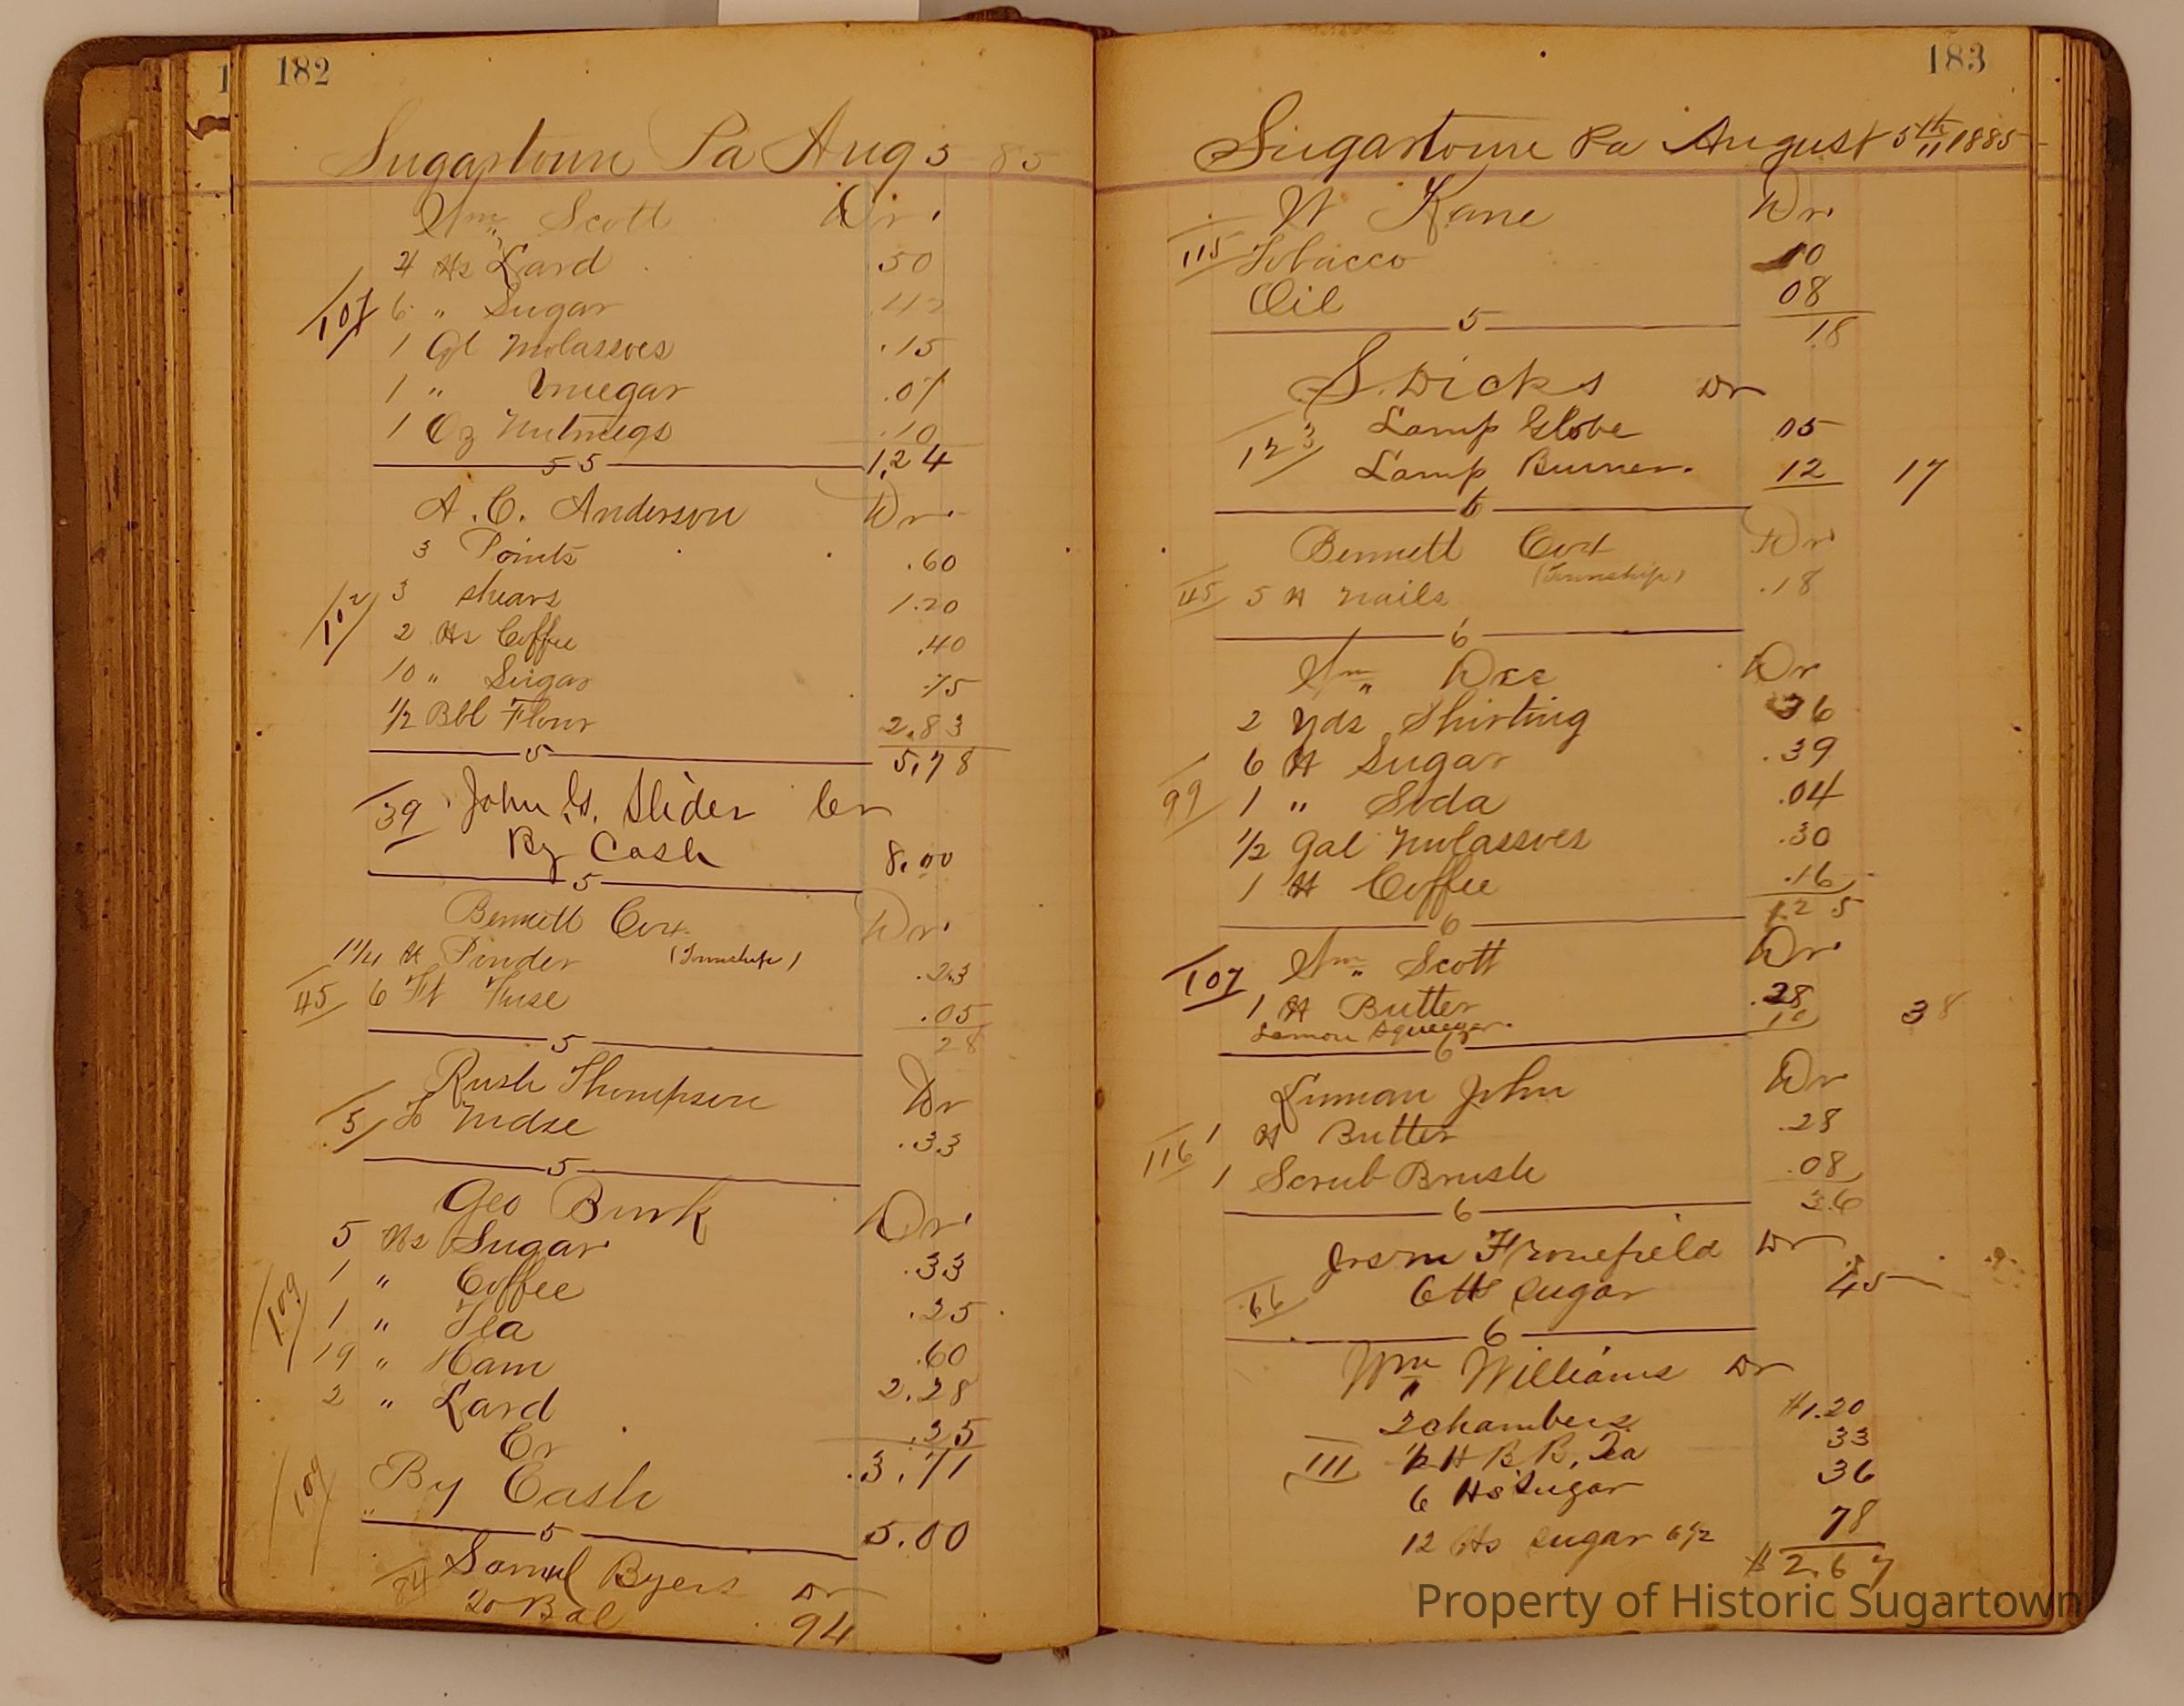 182
Sugartown Pa Aug 5 85
Wm Scott Dr.
4 lbs Lard 50
107 6 " Sugar .42
1 Gl Molassoes .15
1 " Vinegar .07
1 Oz Nutmegs .10
5 5 1.24
A. C. Anderson Dr.
3 Points .60
102 3 shears 1.20
2 lbs Coffee .40
10 " Sugar .75
1/2 Bbl Flour 2.83
5 5.78
39 John G. Slider Cr
By Cash 8.00
5
Bennett Cox Dr.
1 1/4 lb Powder (Township) .23
45 6 Ft Fuse .05
5 28
Rush Thompson Dr
5 To Mdse .33
5
Geo Burk Dr.
5 lbs Sugar .33
109 1 " Coffee .25
1 " Tea .60
19 " Ham 2.28
2 " Lard .25
Cr 3.71
109 By Cash
5 5.00
84 Saml Byers Dr
To Bal 94
183
Sugartown Pa August 5th 1885
W Kane Dr.
115 Tobacco 10
Oil 08
5 18
S. Dicks Dr
123 Lamp Globe .05
Lamp Burner. 12 17
6
Bennett Cox Dr
(Township)
45 5 lb Nails .18
6
Wm " Dr
2 Yds Shirting 36
6 lb Sugar .39
99 1 " Soda .04
1/2 Gal Molassoes .30
1 lb Coffee .16
6 1.25
107 Wm " Scott Dr.
1 lb Butter .28 38
Lemon Squeezer. 10
6
Luman John Dr
116 1 lb Butter .28
1 Scrub Brush .08
6 36
Fronefield Dr
66 6 lbs Sugar 45
6
Wm Williams Dr
2 Chambers $1.20
111 1/2 lb B. B. Tea 33
6 lbs Sugar 36
12 lbs Sugar 6 1/2 78
$2.67
Property of Historic Sugartown